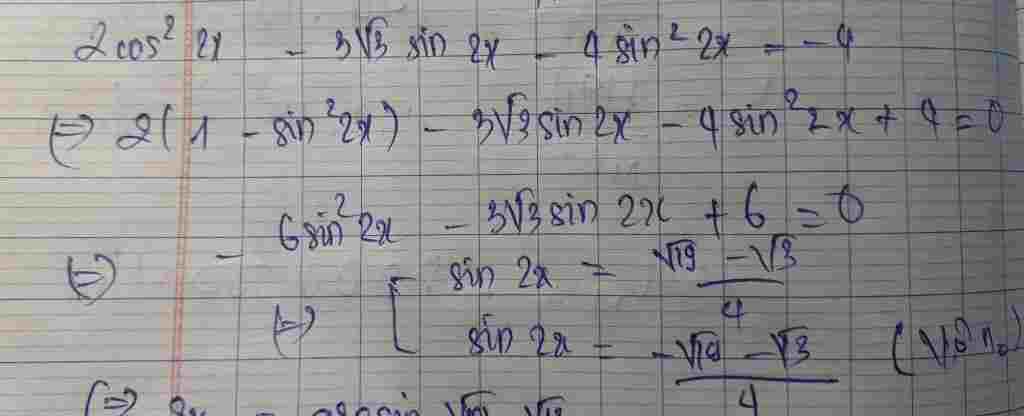 2cos² 2x - 3√3 sin 2x - 4 sin² 2x = -4
(=) 2(1 - sin²2x) - 3√3 sin 2x - 4 sin² 2x + 4 = 0
(=) - 6 sin² 2x - 3√3 sin 2x + 6 = 0
(=) [ sin 2x = (√19 - √3)/4
sin 2x = (-√19 - √3)/4 (Vô n₀)
(=) 2x = arcsin